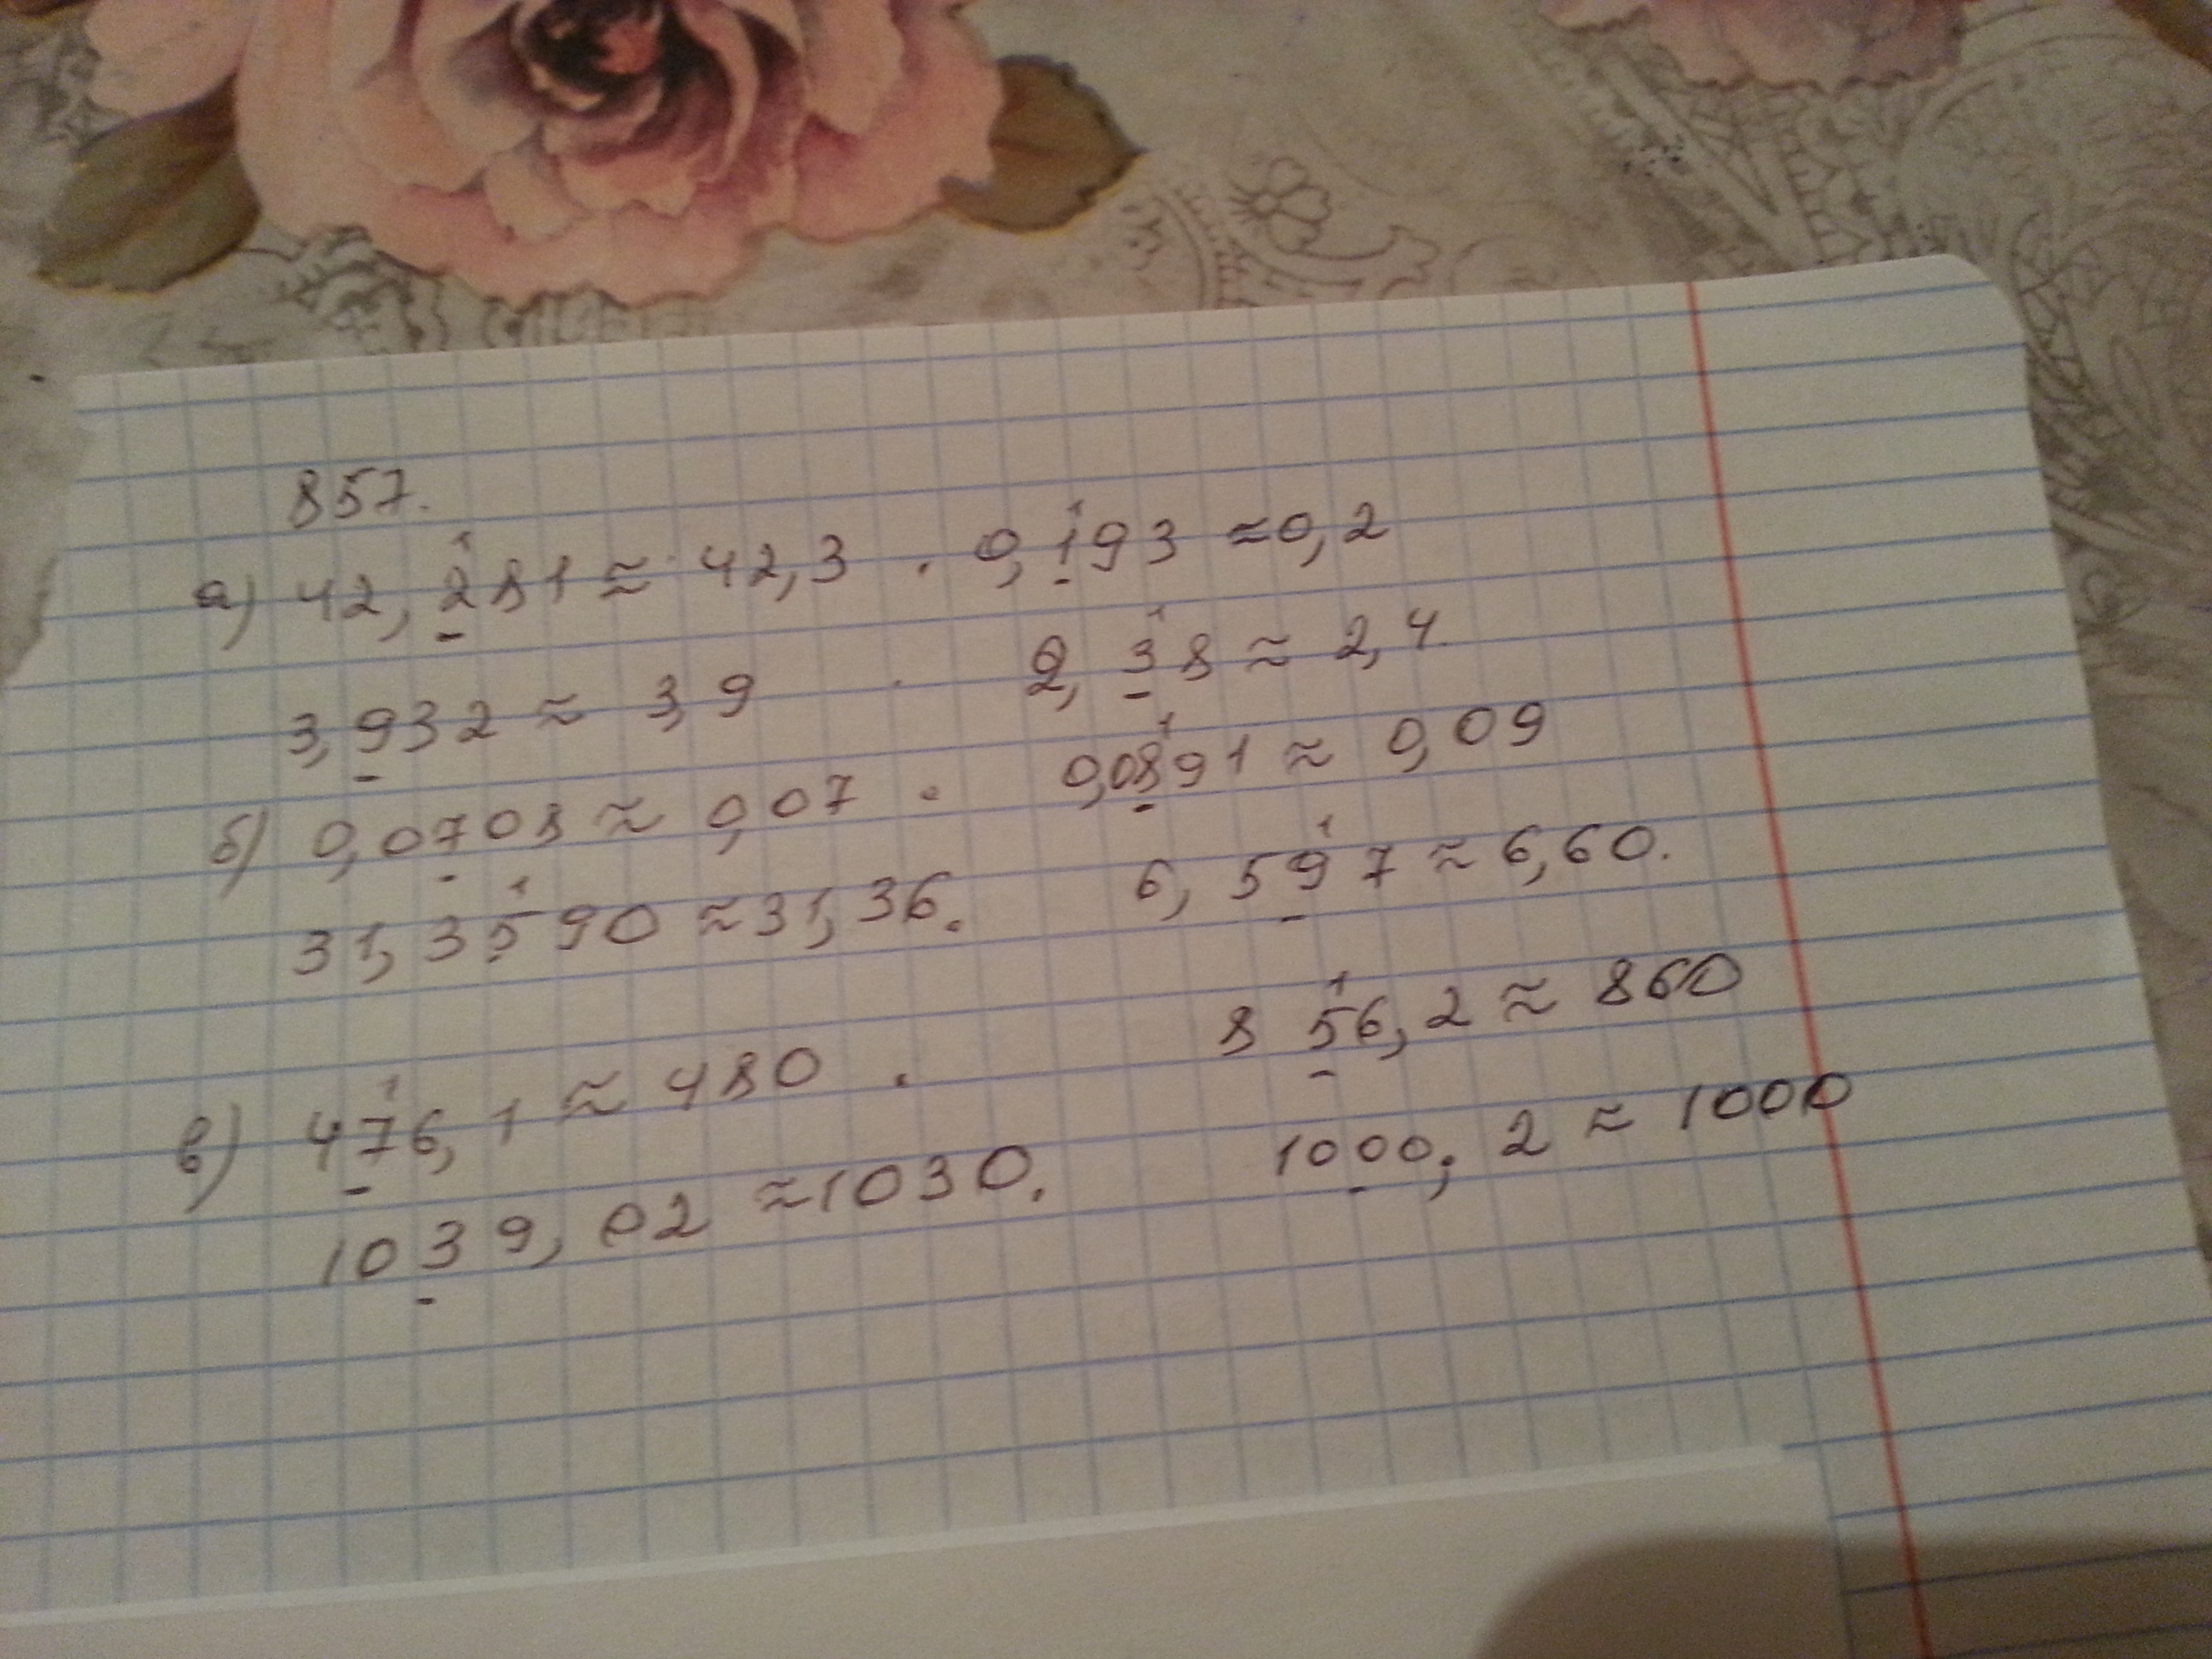 857.
а) 42,281 ≈ 42,3 . 0,193 ≈ 0,2
3,932 ≈ 3,9 . 2,38 ≈ 2,4.
б) 0,0708 ≈ 0,07 . 0,0891 ≈ 0,09
31,3590 ≈ 31,36. 6,597 ≈ 6,60.
в) 476,1 ≈ 480 . 856,2 ≈ 860
1039,02 ≈ 1030. 1000,2 ≈ 1000